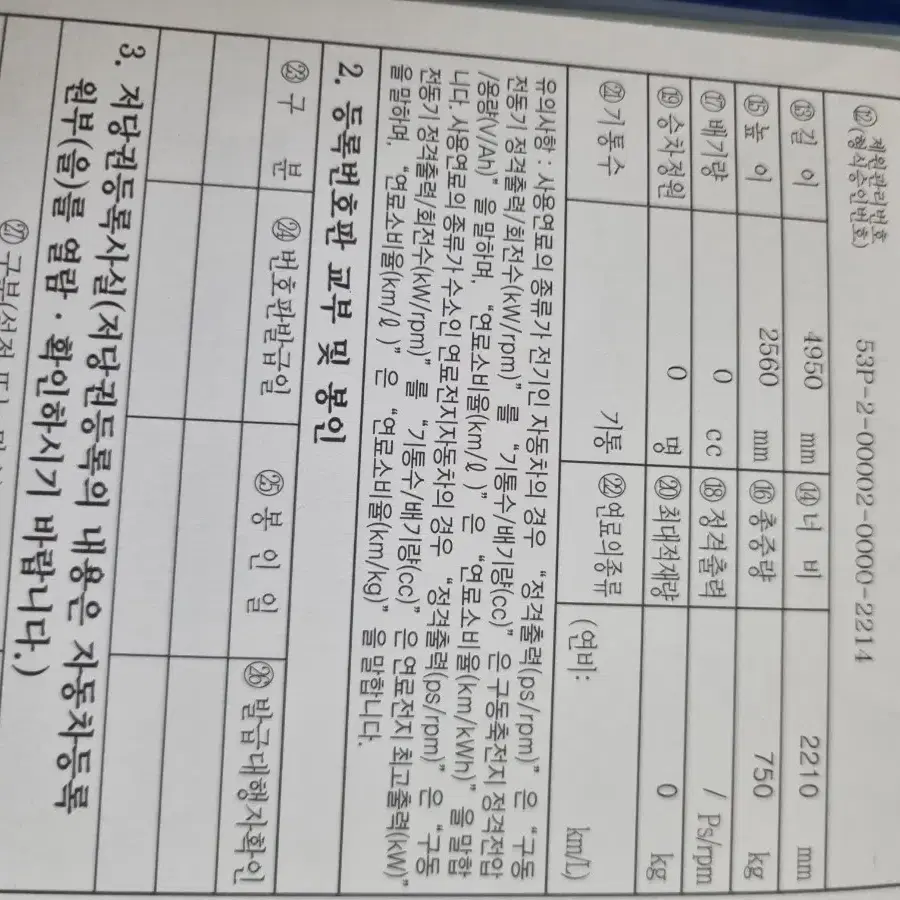 ⑫ 제원관리번호
(형식승인번호)
53P-2-00002-0000-2214
⑬ 길 이 4950 mm ⑭ 너 비 2210 mm
⑮ 높 이 2560 mm ⑯ 총중량 750 kg
⑰ 배기량 0 cc ⑱ 정격출력 / Ps/rpm
⑲ 승차정원 0 명 ⑳ 최대적재량 0 kg
㉑ 기통수 기통 ㉒ 연료의종류 (연비: km/L)
유의사항 : 사용연료의 종류가 전기인 자동차의 경우 “정격출력(ps/rpm)” 은 “구동
전동기 정격출력/회전수(kW/rpm)” 를 “기통수/배기량(cc)” 은 구동축전지 정격전압
/용량(V/Ah)” 을 말하며, “연료소비율(km/ℓ)” 은 “연료소비율(km/kWh)” 을 말합
니다. 사용연료의 종류가 수소인 연료전지자동차의 경우 “정격출력(ps/rpm)” 은 “구동
전동기 정격출력/회전수(kW/rpm)” 를 “기통수/배기량(cc)” 은 연료전지 최고출력(kW)”
을 말하며, “연료소비율(km/ℓ)” 은 “연료소비율(km/kg)” 을 말합니다.
2. 등록번호판 교부 및 봉인
㉓ 구 분 ㉔ 번호판발급일 ㉕ 봉 인 일 ㉖ 발급대행자확인
3. 저당권등록사실(저당권등록의 내용은 자동차등록
원부(을)를 열람 · 확인하시기 바랍니다.)
㉗ 구분(설정 또는